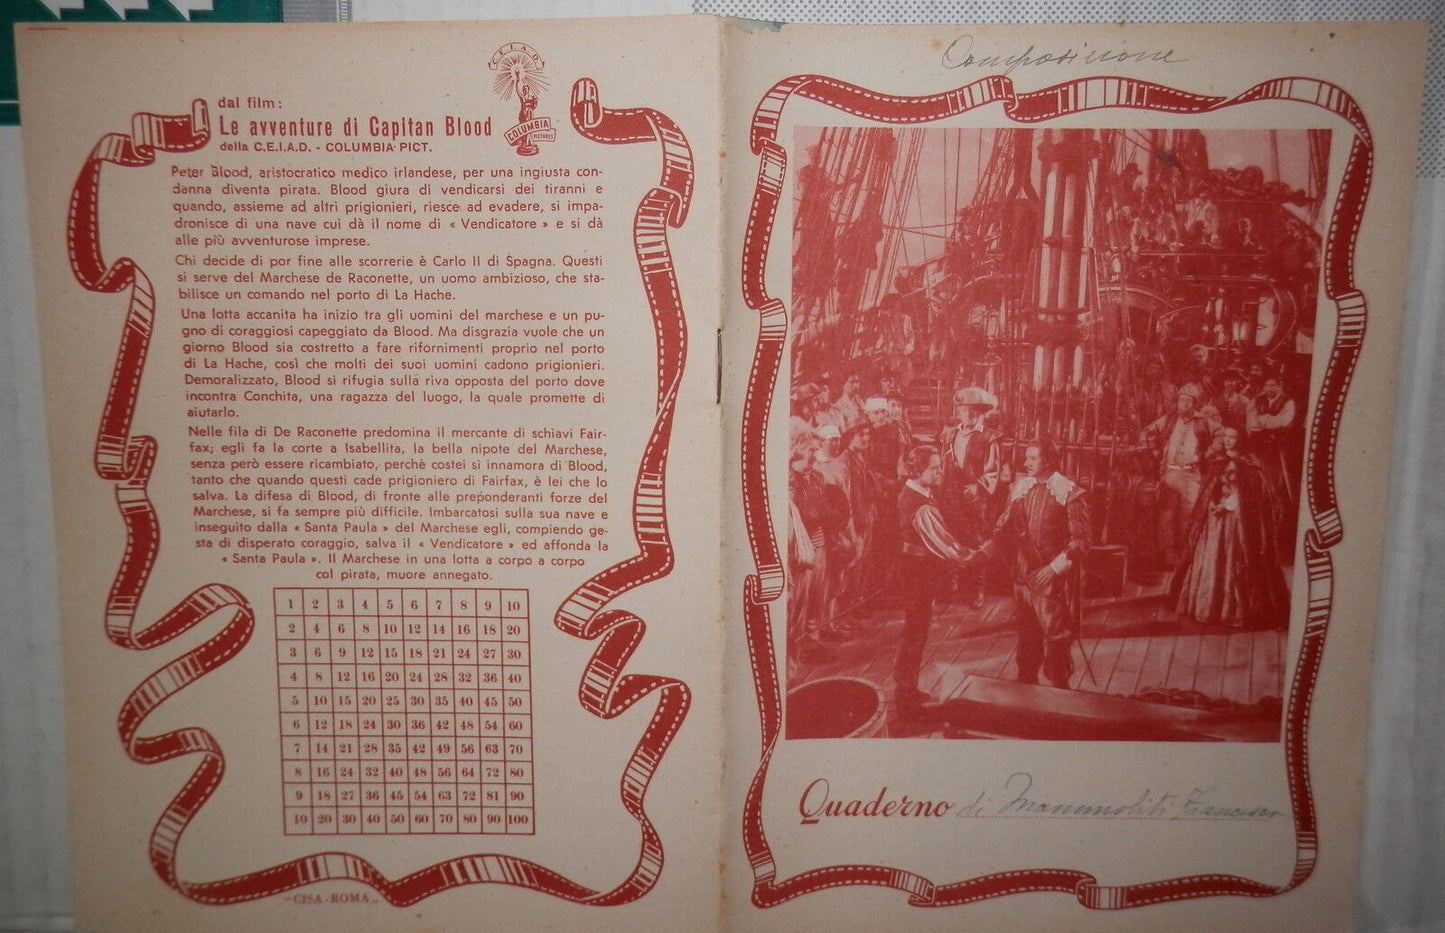 dal film:
Le avventure di Capitan Blood
della C.E.I.A.D. - COLUMBIA PICT.
C.E.I.A.D.
COLUMBIA
PICTURES
Peter Blood, aristocratico medico irlandese, per una ingiusta con-
danna diventa pirata. Blood giura di vendicarsi dei tiranni e
quando, assieme ad altri prigionieri, riesce ad evadere, si impa-
dronisce di una nave cui dà il nome di « Vendicatore » e si dà
alle più avventurose imprese.
Chi decide di por fine alle scorrerie è Carlo II di Spagna. Questi
si serve del Marchese de Raconette, un uomo ambizioso, che sta-
bilisce un comando nel porto di La Hache.
Una lotta accanita ha inizio tra gli uomini del marchese e un pu-
gno di coraggiosi capeggiato da Blood. Ma disgrazia vuole che un
giorno Blood sia costretto a fare rifornimenti proprio nel porto
di La Hache, così che molti dei suoi uomini cadono prigionieri.
Demoralizzato, Blood si rifugia sulla riva opposta del porto dove
incontra Conchita, una ragazza del luogo, la quale promette di
aiutarlo.
Nelle fila di De Raconette predomina il mercante di schiavi Fair-
fax; egli fa la corte a Isabellita, la bella nipote del Marchese,
senza però essere ricambiato, perchè costei si innamora di Blood,
tanto che quando questi cade prigioniero di Fairfax, è lei che lo
salva. La difesa di Blood, di fronte alle preponderanti forze del
Marchese, si fa sempre più difficile. Imbarcatosi sulla sua nave e
inseguito dalla « Santa Paula » del Marchese egli, compiendo ge-
sta di disperato coraggio, salva il « Vendicatore » ed affonda la
« Santa Paula ». Il Marchese in una lotta a corpo a corpo
col pirata, muore annegato.
1 2 3 4 5 6 7 8 9 10
2 4 6 8 10 12 14 16 18 20
3 6 9 12 15 18 21 24 27 30
4 8 12 16 20 24 28 32 36 40
5 10 15 20 25 30 35 40 45 50
6 12 18 24 30 36 42 48 54 60
7 14 21 28 35 42 49 56 63 70
8 16 24 32 40 48 56 64 72 80
9 18 27 36 45 54 63 72 81 90
10 20 30 40 50 60 70 80 90 100
CISA-ROMA
Composizione
Quaderno di Mammoliti Francesco